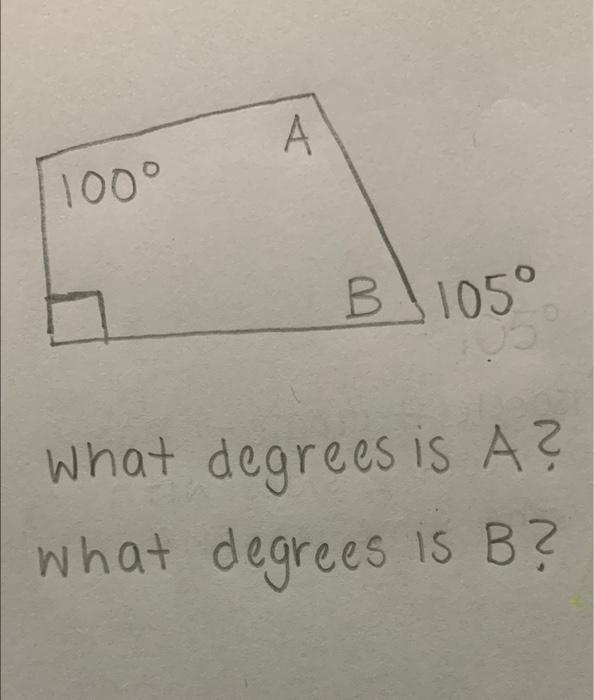 A
100°
B 105°
What degrees is A?
What degrees is B?